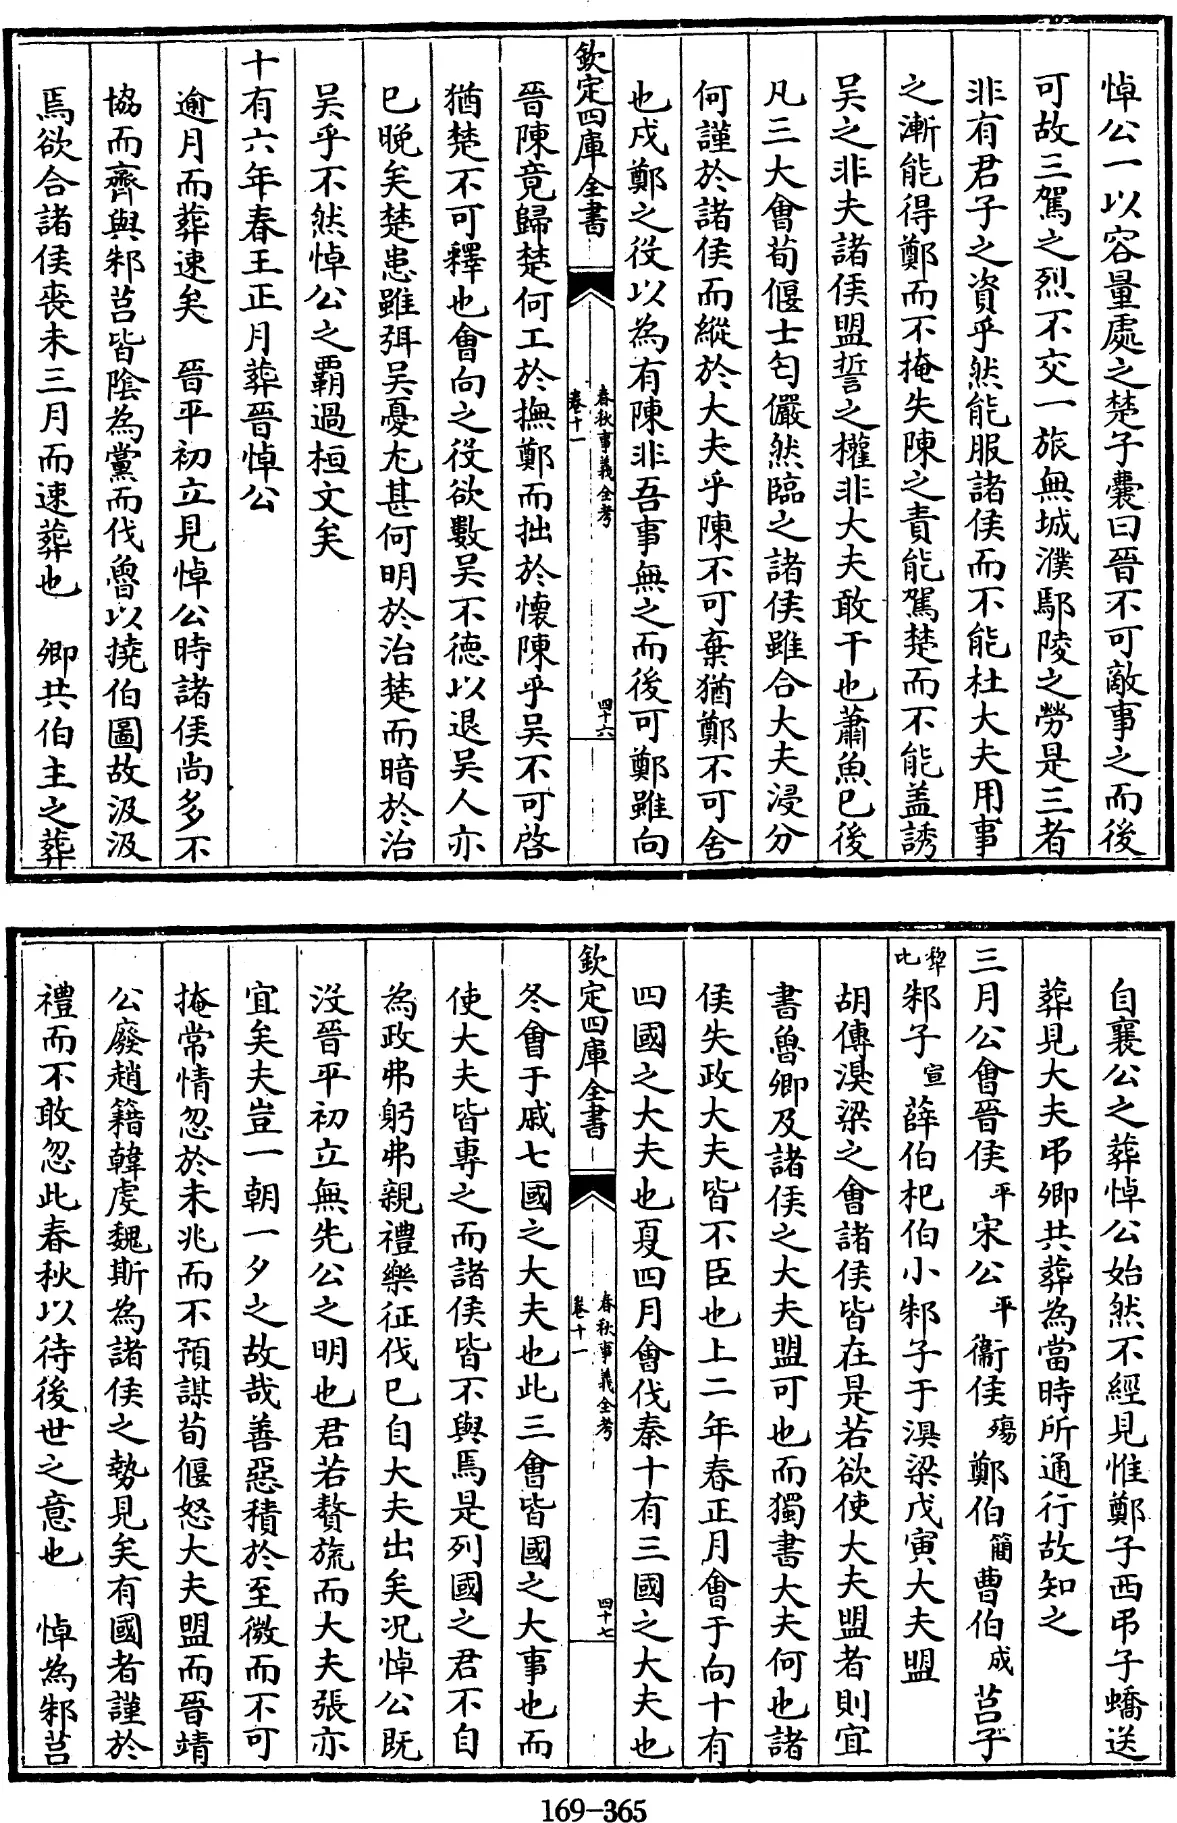 悼公一以容量處之楚子囊曰晉不可敵事之而後
可故三駕之烈不交一旅無城濮鄢陵之勞是三者
非有君子之資乎然能服諸侯而不能杜大夫用事
之漸能得鄭而不掩失陳之責能駕楚而不能蓋誘
吴之非夫諸侯盟誓之權非大夫敢干也蕭魚已後
凡三大會荀偃士匄儼然臨之諸侯雖合大夫浸分
何謹於諸侯而縱於大夫乎陳不可棄猶鄭不可舍
也戍鄭之役以為有陳非吾事無之而後可鄭雖向
欽定四庫全書
春秋事義全考
卷十一
四十六
晉陳竟歸楚何工於撫鄭而拙於懷陳乎吴不可啓
猶楚不可釋也會向之役欲數吴不德以退吴人亦
已晚矣楚患雖弭吴憂尤甚何明於治楚而暗於治
吴乎不然悼公之霸過桓文矣
十有六年春王正月葬晉悼公
逾月而葬速矣 晉平初立見悼公時諸侯尚多不
協而齊與邾莒皆陰為黨而伐魯以撓伯圖故汲汲
焉欲合諸侯喪未三月而速葬也 卿共伯主之葬
自襄公之葬悼公始然不經見惟鄭子西弔子蟜送
葬見大夫弔卿共葬為當時所通行故知之
三月公會晉侯平宋公平衞侯殤鄭伯簡曹伯成莒子
犂比邾子宣薛伯杞伯小邾子于溴梁戊寅大夫盟
胡傳溴梁之會諸侯皆在是若欲使大夫盟者則宜
書魯卿及諸侯之大夫盟可也而獨書大夫何也諸
侯失政大夫皆不臣也上二年春正月會于向十有
四國之大夫也夏四月會伐秦十有三國之大夫也
欽定四庫全書
春秋事義全考
卷十一
四十七
冬會于戚七國之大夫也此三會皆國之大事也而
使大夫皆專之而諸侯皆不與焉是列國之君不自
為政弗躬弗親禮樂征伐已自大夫出矣况悼公既
没晉平初立無先公之明也君若贅旒而大夫張亦
宜矣夫豈一朝一夕之故哉善惡積於至微而不可
掩常情忽於未兆而不預謀荀偃怒大夫盟而晉靖
公廢趙籍韓虔魏斯為諸侯之勢見矣有國者謹於
禮而不敢忽此春秋以待後世之意也 悼為邾莒
169-365